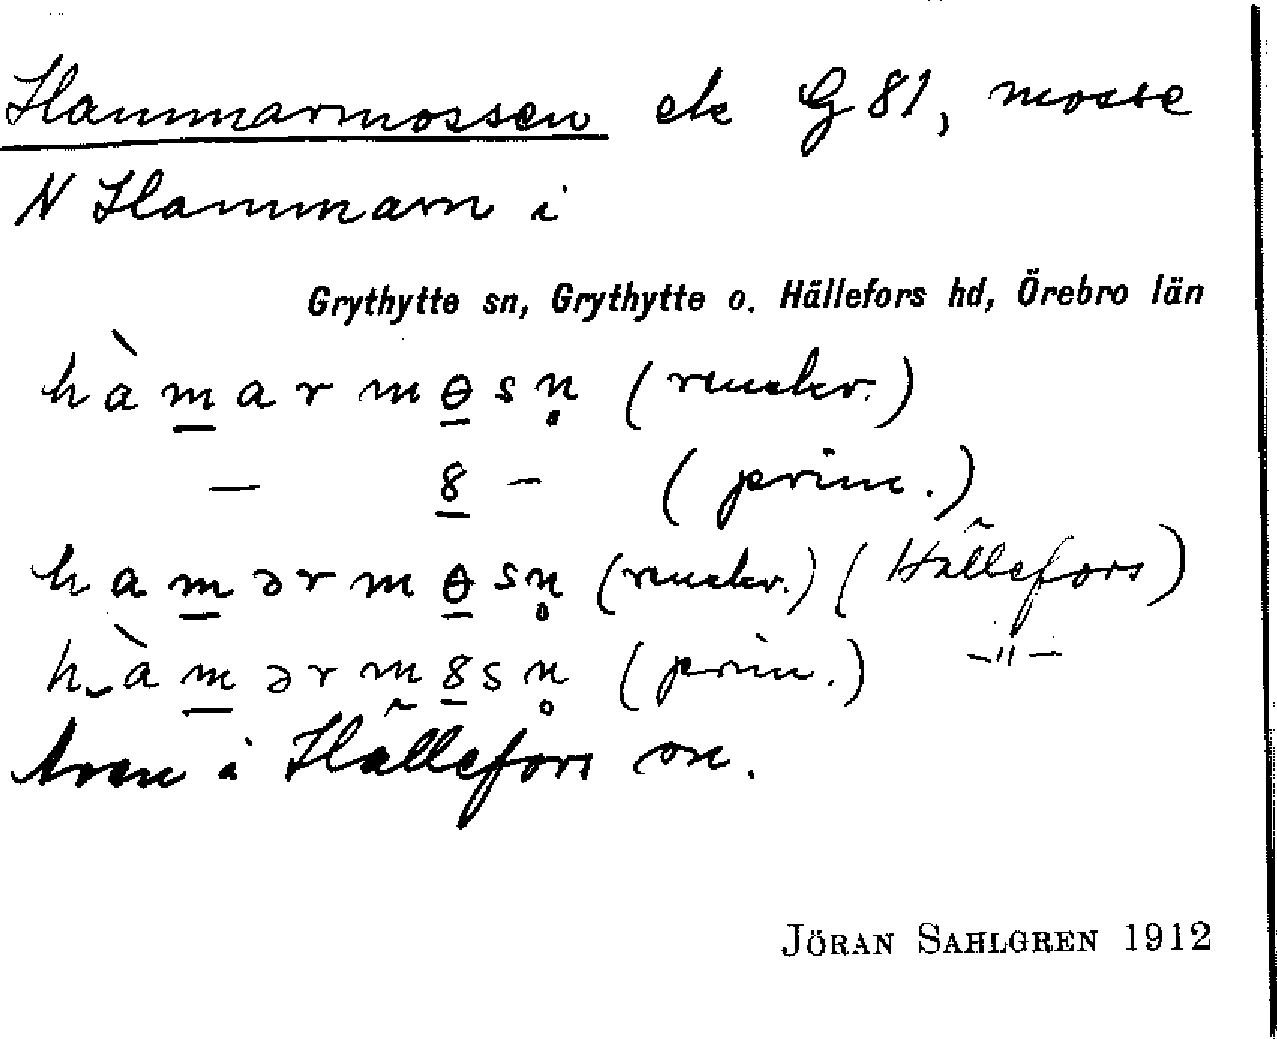 Hammarmossen ek G 81, mosse
N Hammarn i
Grythytte sn, Grythytte o. Hällefors hd, Örebro län
hàmarmɵsn̥ (runekv.)
— 8 — (prim.)
hamərmɵsn̥ (runekv.) (Hällefors)
hàmərm8sn̥ (prim.) –"–
Även i Hällefors sn.
JÖRAN SAHLGREN 1912